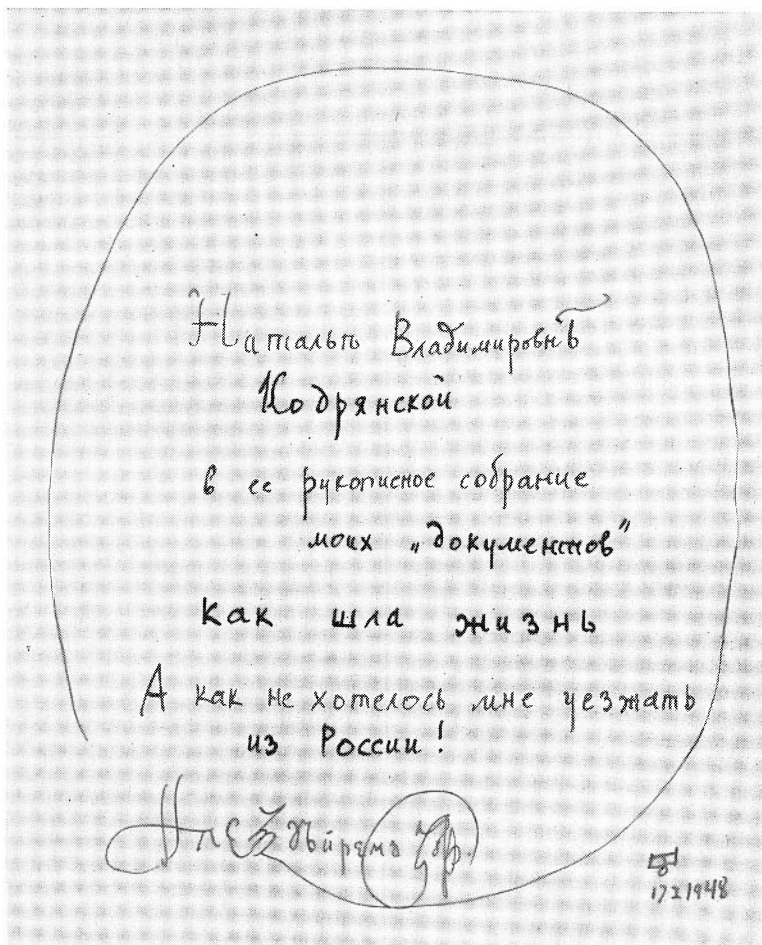 Натальѣ Владимировнѣ
Кодрянской
в ее рукописное собрание
моих „документов"
как шла жизнь
А как не хотелось мне уезжать
из России!
17 X 1948